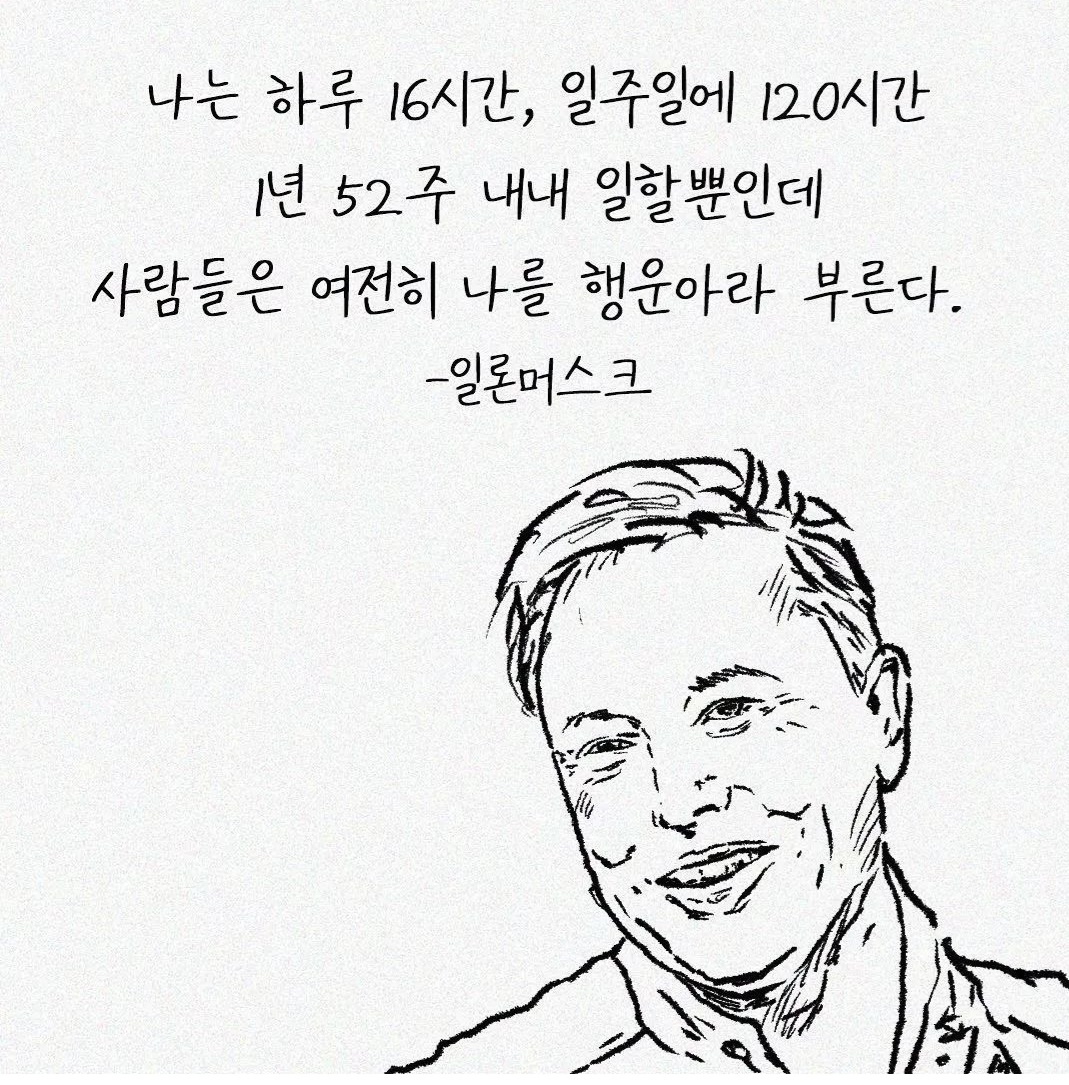 나는 하루 16시간, 일주일에 120시간
1년 52주 내내 일할뿐인데
사람들은 여전히 나를 행운아라 부른다.
-일론머스크